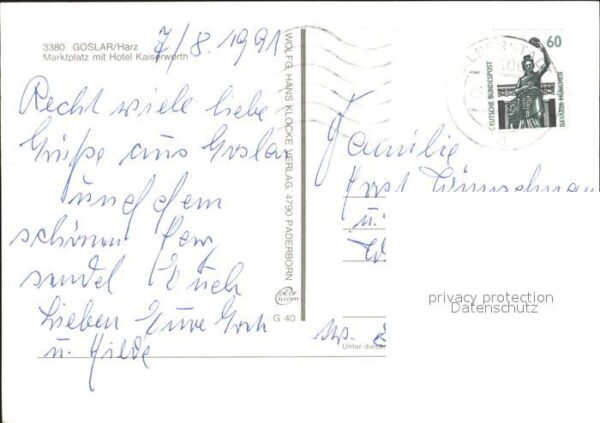 3380 GOSLAR/Harz
Marktplatz mit Hotel Kaiserworth
7/8.1991
Recht viele liebe
Grüße aus Goslar
und dem
schönen
sendet Euch
Lieben Eure
u. Hilde
WOLFG. HANS KLOCKE VERLAG. 4790 PADERBORN
G 40
60
DEUTSCHE BUNDESPOST
BAVARIA MÜNCHEN
Familie
u.
privacy protection
Datenschutz
Unter diese